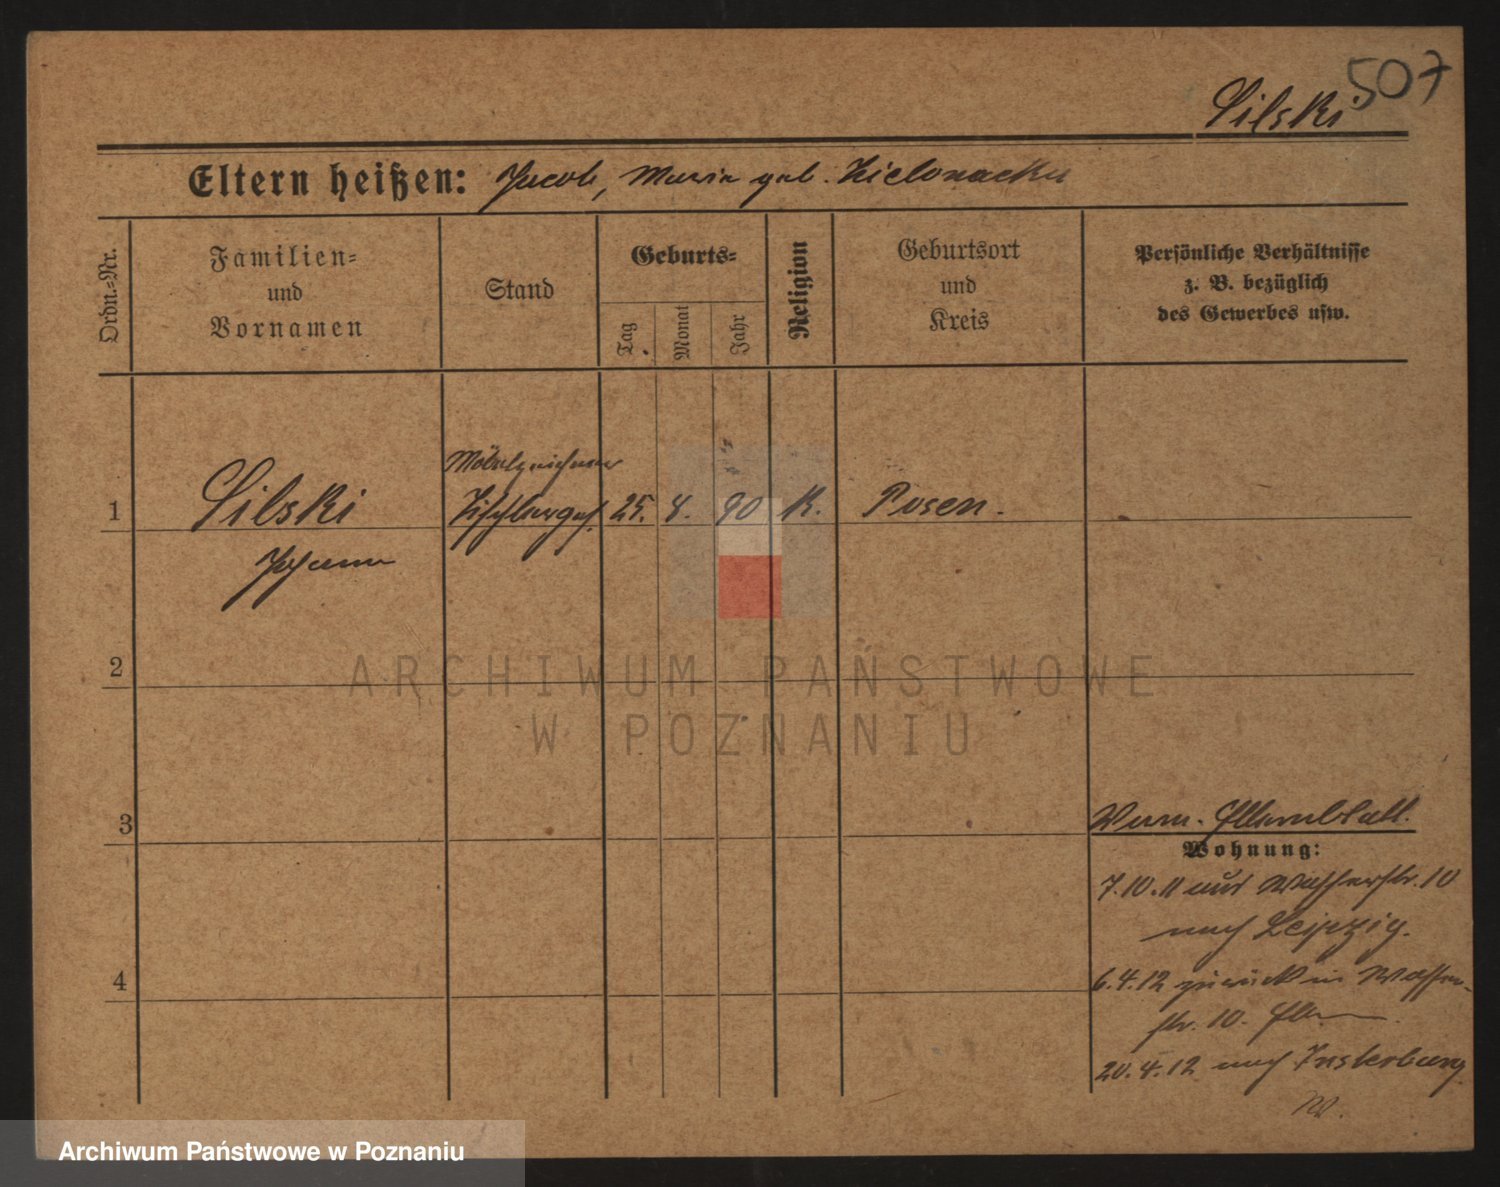 507
Silski
Eltern heißen: Jacob, Maria geb. Zielonacka
Ordn.-Nr.
Familien-
und
Vornamen
Stand
Geburts-
Tag
Monat
Jahr
Religion
Geburtsort
und
Kreis
Persönliche Verhältnisse
z. B. bezüglich
des Gewerbes usw.
Möbelzeichner
1 Silski Tischlerges. 25. 4. 90 K. Posen.
Johann
2
3
Verm. Elternblatt.
Wohnung:
7.10.11 aus Wasserstr. 10
nach Leipzig.
4
6.4.12 zurück in Wasser-
str. 10. Elt.
20.4.12 nach Insterburg
W.
ARCHIWUM PAŃSTWOWE
W POZNANIU
Archiwum Państwowe w Poznaniu